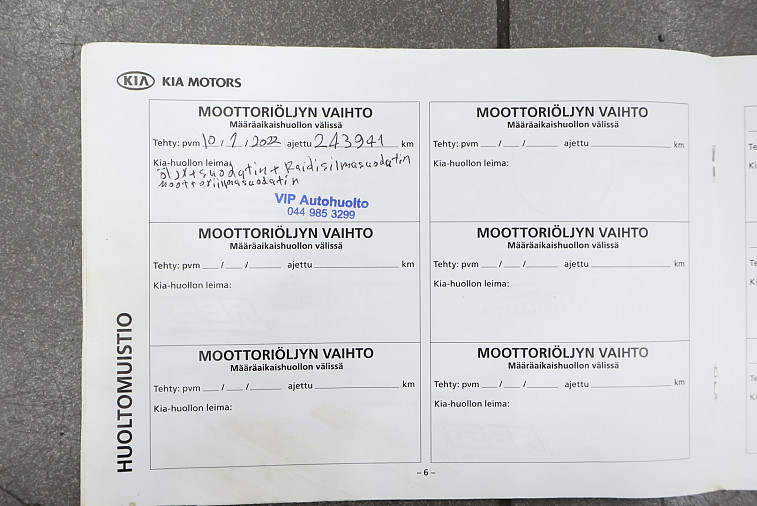 KIA KIA MOTORS
MOOTTORIÖLJYN VAIHTO
Määräaikaishuollon välissä
Tehty: pvm 10 / 1 / 2022 ajettu 243941 km
Kia-huollon leima:
öljy + suodatin + Raidisilmasuodatin
moottoriilmasuodatin
VIP Autohuolto
044 985 3299
MOOTTORIÖLJYN VAIHTO
Määräaikaishuollon välissä
Tehty: pvm / / ajettu km
Kia-huollon leima:
MOOTTORIÖLJYN VAIHTO
Määräaikaishuollon välissä
Tehty: pvm / / ajettu km
Kia-huollon leima:
MOOTTORIÖLJYN VAIHTO
Määräaikaishuollon välissä
Tehty: pvm / / ajettu km
Kia-huollon leima:
MOOTTORIÖLJYN VAIHTO
Määräaikaishuollon välissä
Tehty: pvm / / ajettu km
Kia-huollon leima:
MOOTTORIÖLJYN VAIHTO
Määräaikaishuollon välissä
Tehty: pvm / / ajettu km
Kia-huollon leima:
HUOLTOMUISTIO
– 6 –